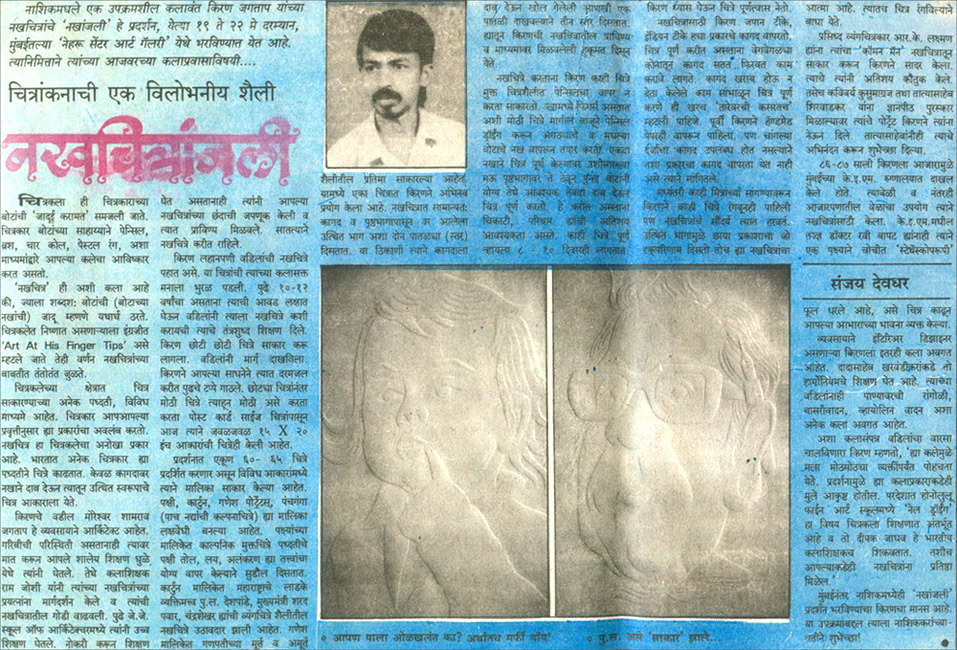 नाशिकमधले एक उपक्रमशील कलावंत किरण जगताप यांच्या
नखचित्रांचे 'नखांजली' हे प्रदर्शन, येत्या १९ ते २२ मे दरम्यान,
मुंबईतल्या 'नेहरू सेंटर आर्ट गॅलरी' येथे भरविण्यात येत आहे.
त्यानिमित्ताने त्यांच्या आजवरच्या कलाप्रवासाविषयी....
चित्रांकनाची एक विलोभनीय शैली
नखचित्रांजली
चित्रकला ही चित्रकाराच्या
बोटांची 'जादुई करामत' समजली जाते.
चित्रकार बोटांच्या साहाय्याने पेन्सिल,
ब्रश, चार कोल, पेस्टल रंग, अशा
माध्यमांद्वारे आपल्या कलेचा आविष्कार
करत असतो.
'नखचित्र' ही अशी कला आहे
की, ज्याला शब्दशः बोटांची (बोटाच्या
नखांची) जादू म्हणणे यथार्थ ठरते.
चित्रकलेत निष्णात असणाऱ्याला इंग्रजीत
'Art At His Finger Tips' असे
म्हटले जाते तेही वर्णन नखचित्रांच्या
बाबतीत तंतोतंत जुळते.
चित्रकलेच्या क्षेत्रात चित्र
साकारण्याच्या अनेक पध्दती, विविध
माध्यमे आहेत. चित्रकार आपआपल्या
प्रवृत्तीनुसार ह्या प्रकारांचा अवलंब करतो.
नखचित्र हा चित्रकलेचा अनोखा प्रकार
आहे. भारतात अनेक चित्रकार ह्या
पध्दतीने चित्रे काढतात. केवळ कागदावर
नखाने दाब देऊन त्यातून उत्थित स्वरूपाचे
चित्र आकाराला येते.
किरणचे वडील मोरेश्वर शामराव
जगताप हे व्यवसायाने आर्किटेक्ट आहेत.
गरिबीची परिस्थिती असतानाही त्यावर
मात करून आपले शालेय शिक्षण धुळे
येथे त्यांनी घेतले. तेथे कलाशिक्षक
राम जोशी यांनी त्यांच्या नखचित्रांच्या
प्रयत्नांना मार्गदर्शन केले व त्यांची
नखचित्रातील गोडी वाढवली. पुढे जे.जे.
स्कूल ऑफ आर्किटेक्चरमध्ये त्यांनी उच्च
शिक्षण घेतले. नोकरी करून शिक्षण
घेत असतानाही त्यांनी आपल्या
नखचित्रांच्या छंदाची जपणूक केली व
त्यात प्राविण्य मिळवले. सातत्याने
नखचित्रे करीत राहिले.
किरण लहानपणी वडिलांची नखचित्रे
पहात असे. या चित्रांची त्याच्या कलासक्त
मनाला भुरळ पडली. पुढे १०-१२
वर्षांचा असताना त्याची आवड लक्षात
घेऊन वडिलांनी त्याला नखचित्रे कशी
करायची त्याचे तंत्रशुध्द शिक्षण दिले.
किरण छोटी छोटी चित्रे साकार करू
लागला. वडिलांनी मार्ग दाखविला.
किरणने आपल्या साधनेने त्यात दरमजल
करीत पुढचे टप्पे गाठले. छोट्या चित्रांनंतर
मोठी चित्रे त्याहून मोठी असे करता
करता पोस्ट कार्ड साईज चित्रांपासून
आज त्याने जवळजवळ १५ X २०
इंच आकारांची चित्रेही केली आहेत.
प्रदर्शनात एकूण ६०- ६५ चित्रे
प्रदर्शित करणार असून विविध आकारांमध्ये
त्याने मालिका साकार केल्या आहेत.
पक्षी, कार्टुन, गणेश पोर्ट्रेटस्, पंचगंगा
(पाच नद्यांची कल्पनाचित्रे) ह्या मालिका
लक्षवेधी बनल्या आहेत. पक्ष्यांच्या
मालिकेत काल्पनिक मुक्तचित्रे पध्दतीचे
पक्षी तोल, लय, अलंकरण ह्या तत्त्वांचा
योग्य वापर केल्याने सुडौल दिसतात.
कार्टुन मालिकेत महाराष्ट्राचे लाडके
व्यक्तिमत्त्व पु.ल. देशपांडे, मुख्यमंत्री शरद
पवार, चंद्रशेखर ह्यांची व्यंगचित्रे शैलीतील
नखचित्रे उठावदार झाली आहेत. गणेश
मालिकेत गणपतीच्या मूर्त व अमूर्त
शैलीतील प्रतिमा साकारल्या आहेत.
यामध्ये एका चित्रात किरणने अभिनव
प्रयोग केला आहे. नखचित्रात सामान्यतः
कागद व पृष्ठभागापासून वर आलेला
उत्थित भाग अशा दोन पातळ्या (स्तर)
दिसतात. या ठिकाणी त्याने कागदाला
दाब देऊन खोल गेलेली आणखी एक
पातळी दाखवल्याने तीन स्तर दिसतात.
ह्यातून किरणची नखचित्रातील प्राविण्य
व माध्यमावर मिळवलेली हुकूमत दिसून
येते.
नखचित्रे करताना किरण काही चित्रे
मुक्त चित्रशैलीत पेन्सिलचा वापर न
करता साकारतो. ज्यामध्ये फिगर्स असतात
अशी मोठी चित्रे मागील बाजूने पेन्सिल
ड्रॉईंग करून अंगठ्याचे व मधल्या
बोटाचे नख वापरून तयार करतो. एकदा
नखाने चित्र पूर्ण केल्यावर उशीसारख्या
मऊ पृष्ठभागावर ते ठेवून पुन्हा बोटांनी
योग्य तेथे आवश्यक तेवढा दाब देऊन
चित्र पूर्ण करतो. हे करीत असताना
चिकाटी, परिश्रम ह्यांची अतिशय
आवश्यकता असते. काही चित्रे पूर्ण
व्हायला ८ - १० दिवसही लागतात.
किरण ध्यास घेऊन चित्रे पूर्णत्वास नेतो.
नखचित्रासाठी किरण जपान टिके,
इंडियन टीके ह्या प्रकारचे कागद वापरतो.
चित्र पूर्ण करीत असताना वेगवेगळ्या
कोनातून कागद सतत फिरवत काम
करावे लागते. कागद खराब होऊ न
देता केलेले काम सांभाळून चित्र पूर्ण
करणे ही खरंच 'तारेवरची कसरतच'
म्हटली पाहिजे. पूर्वी किरणने हॅण्डमेड
पेपरही वापरून पाहिला. पण चांगल्या
दर्जाचा कागद उपलब्ध होत नसल्याने
तशा प्रकारचा कागद वापरता येत नाही
असे त्याने सांगितले.
मध्यंतरी काही मित्रांच्या सांगण्यावरून
किरणने काही चित्रे रंगवूनही पाहिली
पण नखचित्रांचे सौंदर्य त्यात हरवतं.
उत्थित भागामुळे छाया प्रकाशाचा जो
एकपरिणाम दिसतो तोच ह्या नखचित्रांचा
आत्मा आहे. त्यातच चित्र रंगविल्याने
बाधा येते.
प्रसिध्द व्यंगचित्रकार आर.के. लक्ष्मण
ह्यांना त्यांचा 'कॉमन मॅन' नखचित्रातून
साकार करून किरणने सादर केला.
त्याचे त्यांनी अतिशय कौतुक केले.
तसेच कविवर्य कुसुमाग्रज तथा तात्यासाहेब
शिरवाडकर यांना ज्ञानपीठ पुरस्कार
मिळाल्यावर त्यांचे पोर्ट्रेट किरणने त्यांना
नेऊन दिले. तात्यासाहेबांनीही त्याचे
अभिनंदन करून शुभेच्छा दिल्या.
८६-८७ साली किरणला आजारामुळे
मुंबईच्या के.इ.एम. रुग्णालयात दाखल
केले होते. त्यावेळी व नंतरही
आजारपणातील वेळाचा उपयोग त्याने
नखचित्रांसाठी केला. के.ए.एम.मधील
तज्ज्ञ डॉक्टर रवी बापट ह्यांनाही त्याने
एक पक्ष्याने चोचीत 'स्टेथॅस्कोपरूपी'
संजय देवधर
फूल धरले आहे, असे चित्र काढून
आपल्या आभाराच्या भावना व्यक्त केल्या.
व्यवसायाने इंटिरिअर डिझाइनर
असणाऱ्या किरणला इतरही कला अवगत
आहेत. दादासाहेब खरवंडीकरांकडे तो
हार्मोनियमचे शिक्षण घेत आहे. त्याच्या
वडिलांनाही पाण्यावरची रांगोळी,
बासरीवादन, व्हायोलिन वादन अशा
अनेक कला अवगत आहेत.
अशा कलासंपन्न वडिलांचा वारसा
चालविणारा किरण म्हणतो, 'ह्या कलेमुळे
मला मोठमोठ्या व्यक्तींपर्यंत पोहचता
येते. प्रदर्शनामुळे ह्या कलाप्रकाराकडेही
मुले आकृष्ट होतील. परदेशात होनोलूलू
फाईन आर्ट स्कूलमध्ये 'नेल ड्रॉईंग'
हा विषय चित्रकला शिक्षणात अंतर्भूत
आहे व तो दीपक जाधव हे भारतीय
कलाशिक्षकच शिकवतात. तशीच
आपल्याकडेही नखचित्रांना प्रतिष्ठा
मिळेल.'
मुंबईनंतर नाशिकमध्येही 'नखांजली'
प्रदर्शन भरविण्याचा किरणचा मानस आहे.
या उपक्रमाबद्दल त्याला नाशिककरांच्या-
वतीने शुभेच्छा!
० आपण याला ओळखलंत का? अर्थातच मर्फी बॉय!
० पु.ल. असे 'साकार' झाले...